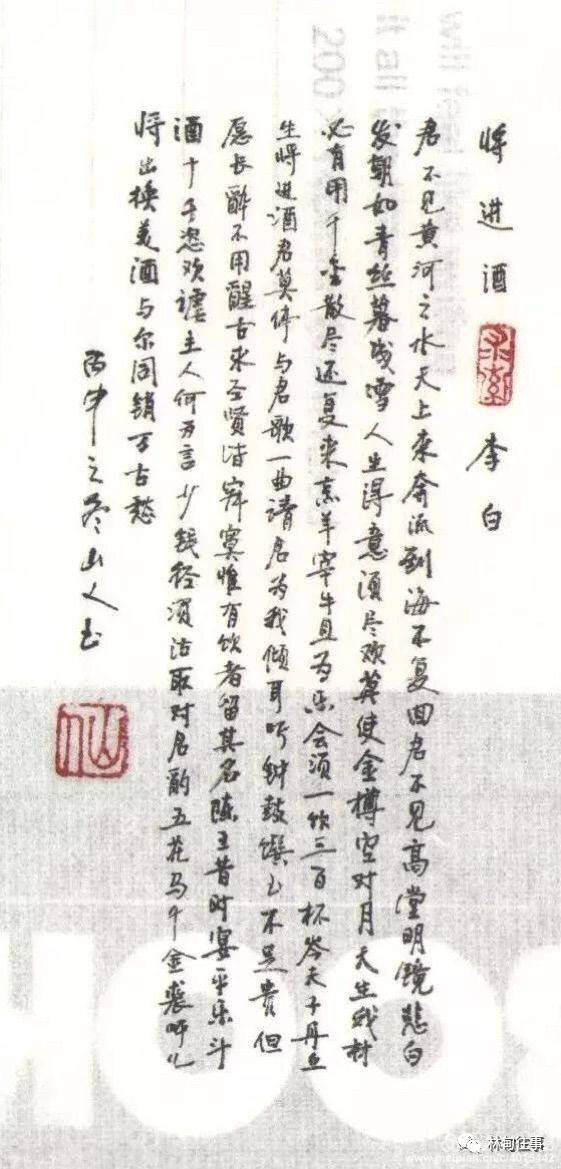 将进酒 李白
君不见黄河之水天上来奔流到海不复回君不见高堂明镜悲白
发朝如青丝暮成雪人生得意须尽欢莫使金樽空对月天生我材
必有用千金散尽还复来烹羊宰牛且为乐会须一饮三百杯岑夫子丹丘
生将进酒君莫停与君歌一曲请君为我倾耳听钟鼓馔玉不足贵但
愿长醉不用醒古来圣贤皆寂寞惟有饮者留其名陈王昔时宴平乐斗
酒十千恣欢谑主人何为言少钱径须沽取对君酌五花马千金裘呼儿
将出换美酒与尔同销万古愁
丙申之冬山人书
仙
will
it all
200
林甸往事